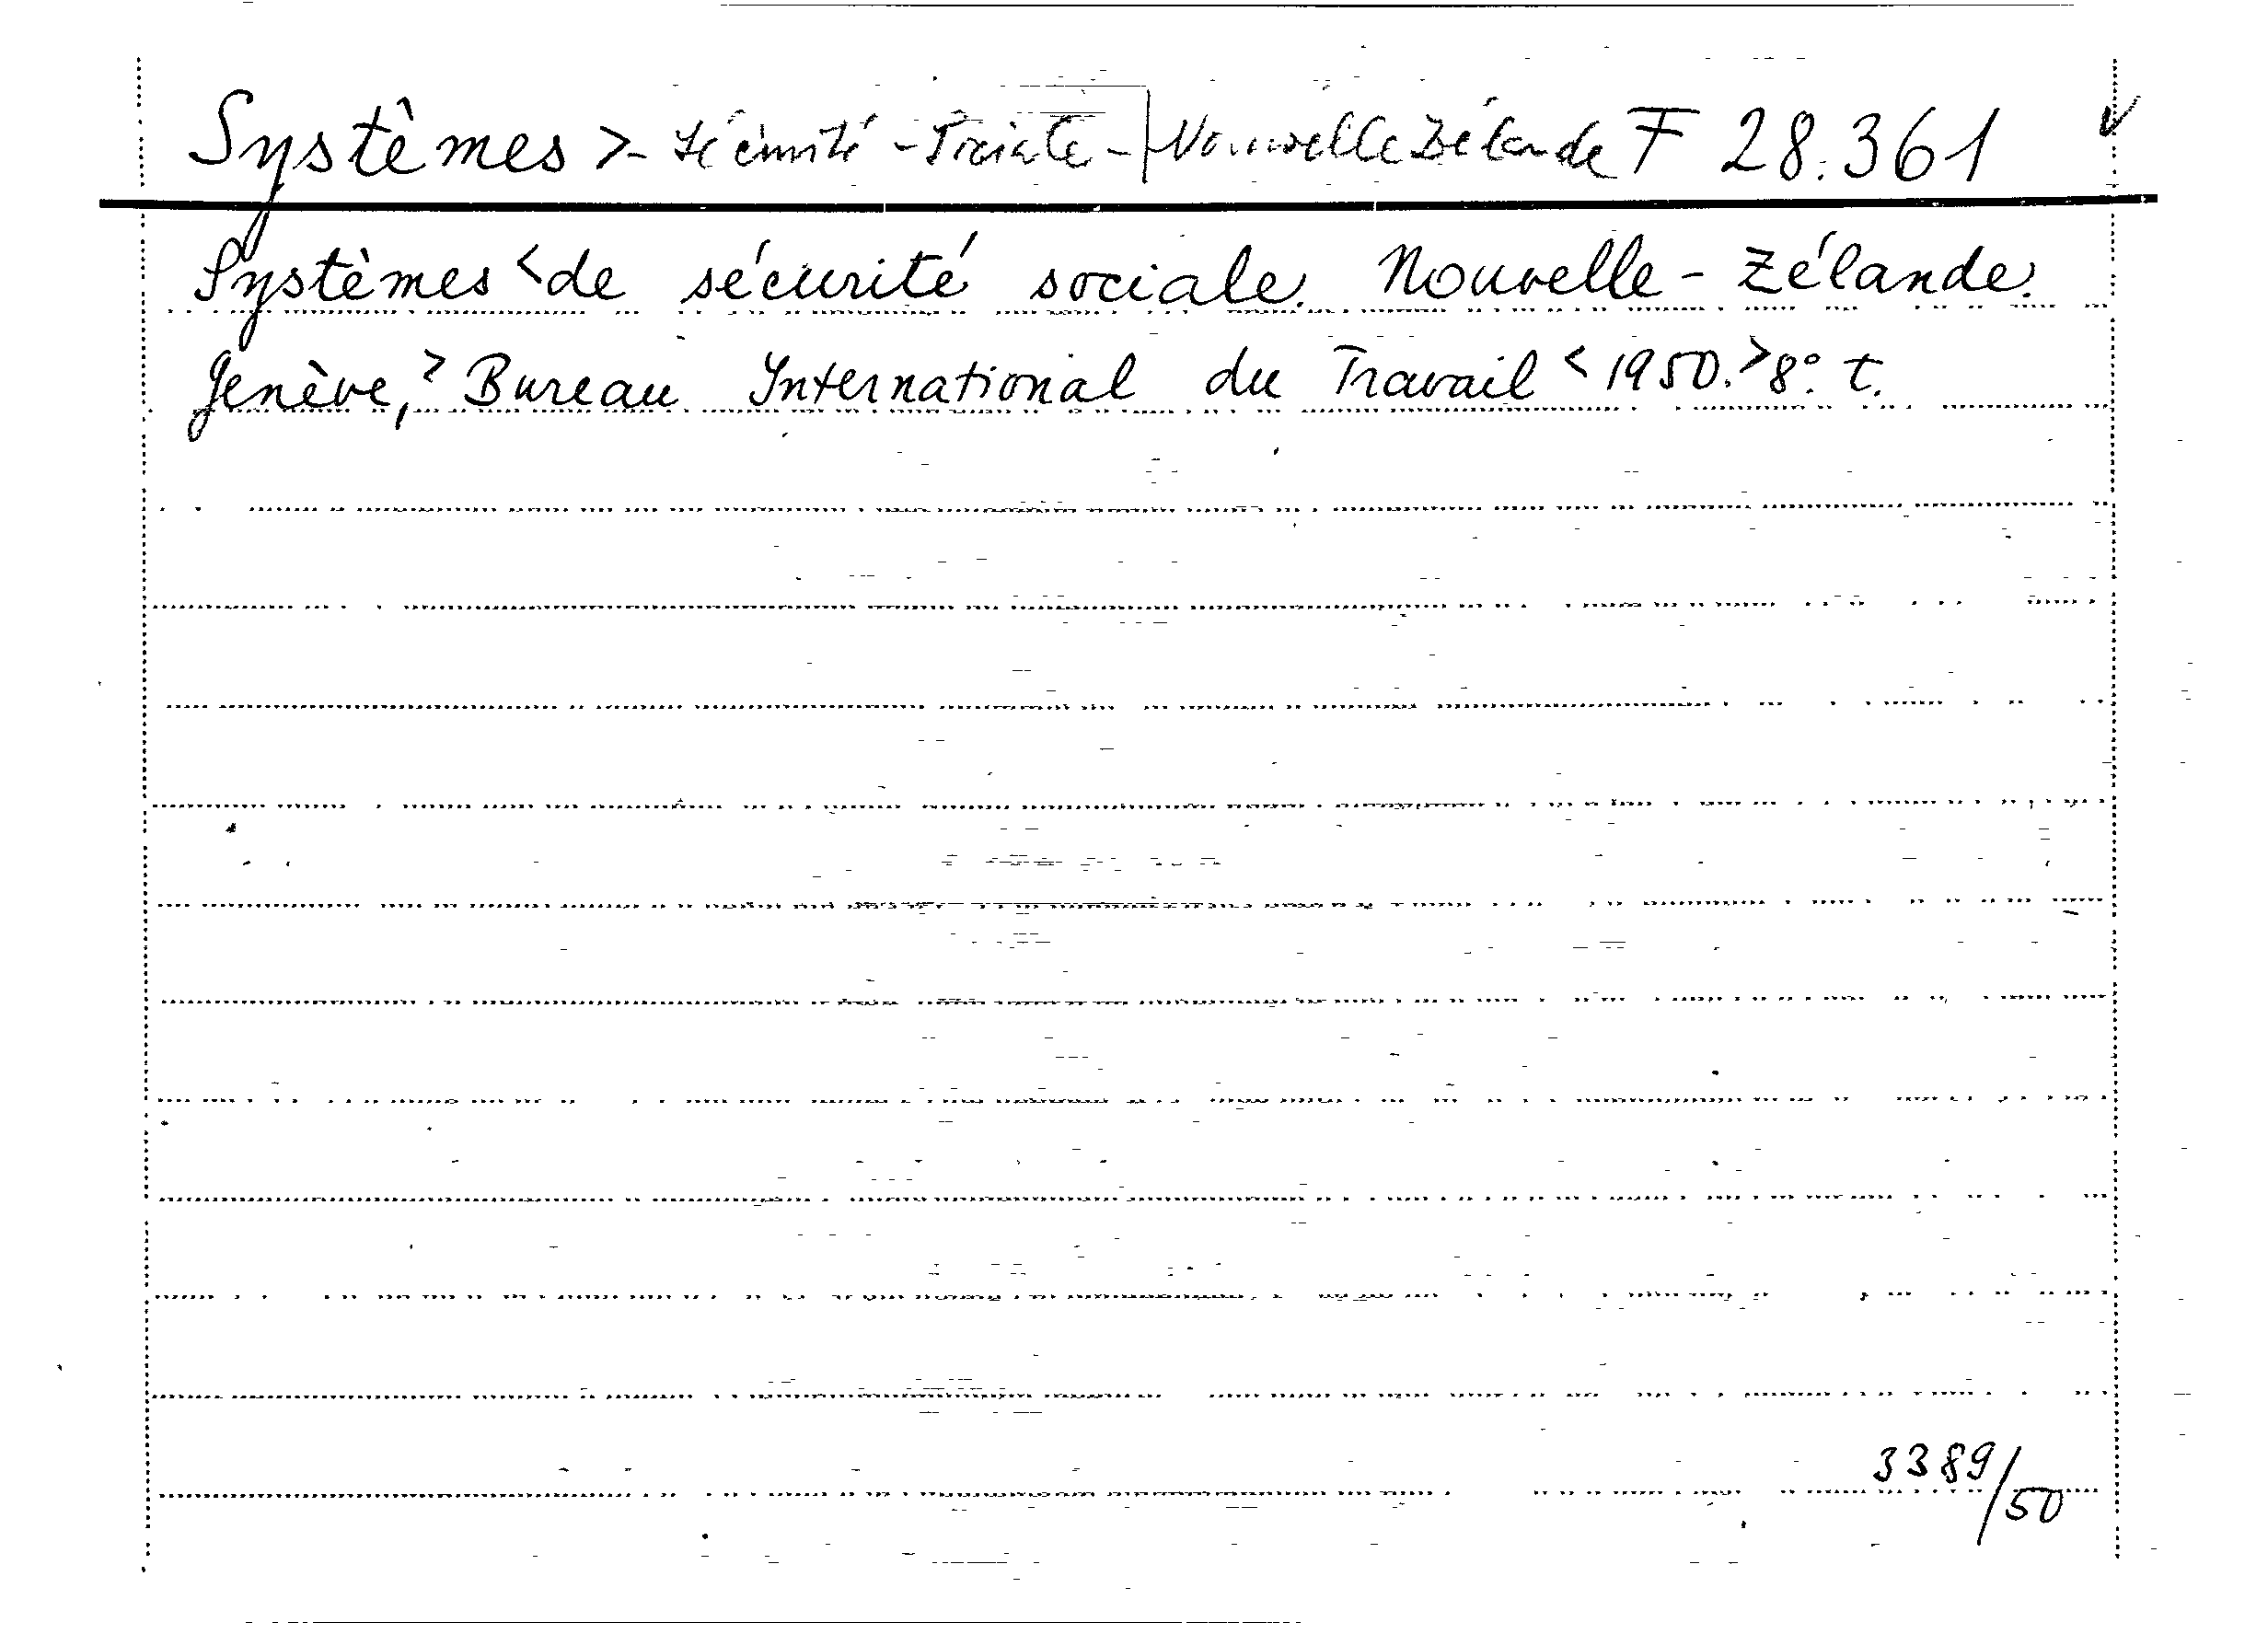 Systêmes >- Sécurité - Sociale - | Nouvelle Zélande F 28.361
Systèmes < de sécurité sociale. Nouvelle - Zélande.
Genève, > Bureau International du Travail < 1950. > 8° t.
3389/50